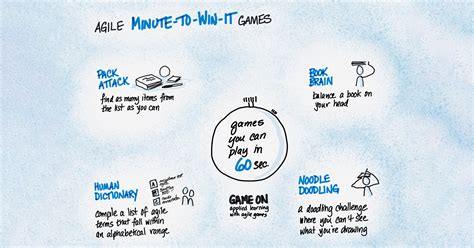 AGILE MINUTE-TO-WIN-IT GAMES
PACK
ATTACK
find as many items from
the list as you can
BOOK
BRAIN
balance a book on
your head
games
you can
play in
60 sec.
HUMAN
DICTIONARY
compile a list of agile
terms that fall within
an alphabetical range
GAME ON
applied learning
with agile games
NOODLE
DOODLING
a doodling challenge
where you can't see
what you're drawing